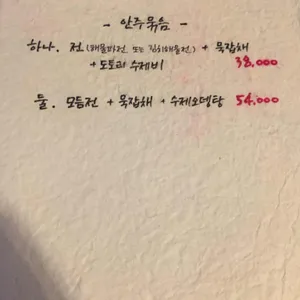 - 안주묶음 -
하나. 전 (해물파전 또는 김치해물전) + 묵잡채
+ 도토리 수제비 38,000
둘. 모듬전 + 묵잡채 + 수제오뎅탕 54,000